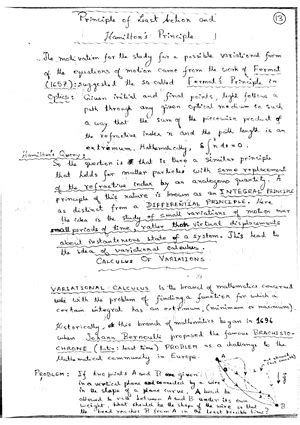 Principle of Least Action and
Hamilton's Principle
13
The motivation for the study for a possible variational form
of the equations of motion came from the work of Fermat
(1657): suggested the so called Fermat's Principle in
Optics: Given initial and final points, light follow a
path through any given optical medium in such
a way that the sum of the piecewise product of
the refractive index n and the path length is an
extremum. Mathematically, δ∫ n ds = 0.
Hamilton's Query:
So the question is that is there a similar principle
that holds for matter particles with some replacement
of the refractive index by an analogous quantity. A
principle of this nature is known as an INTEGRAL PRINCIPLE
as distinct from a DIFFERENTIAL PRINCIPLE. Here
the idea is the study of small variations of motion over
small periods of time, rather than virtual displacements
about instantaneous state of a system. This lead to
the idea of variational calculus.
CALCULUS OF VARIATIONS
VARIATIONAL CALCULUS is the branch of mathematics concerned
with the problem of finding a function for which a
certain integral has an extremum, (minimum or maximum).
Historically, this branch of mathematics began in 1696
when Johann Bernoulli proposed the famous BRACHISTO-
CHRONE (time) PROBLEM as a challenge to the
Mathematical community in Europe.
PROBLEM: If two points A and B are given
in a vertical plane and connected by a wire
in the shape of a plane curve. A bead is
allowed to between A and B under its own
weight, what should be the shape of the wire so that
the bead reaches B from A in the least possible time?
A
B